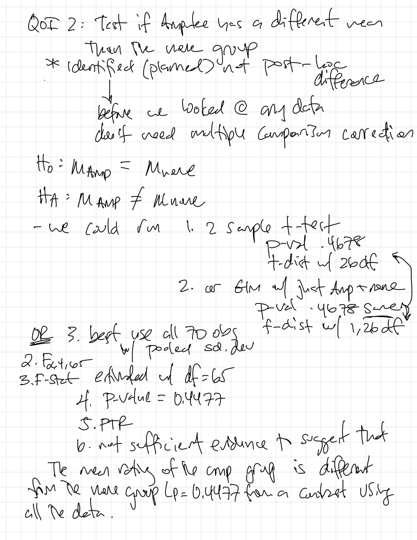 QOI 2: Test if Amputee has a different mean
than the none group
* identified (planned) not post-hoc
difference
before we looked @ any data
don't need multiple comparison correction
H₀: μ_Amp = μ_none
H_A: μ_Amp ≠ μ_none
- we could run 1. 2 sample t-test
p-val .4678
t-dist w/ 26 df
2. or GLM w/ just Amp + none
p-val .4678 same
f-dist w/ 1, 26 df
OR 3. best, use all 70 obs
w/ pooled sd. dev
2. F 4, 65
3. F-Stat estimated w/ df = 65
4. p-value = 0.4477
5. FTR
6. not sufficient evidence to suggest that
The mean rating of the amp group is different
from the none group (p = 0.4477 from a contrast using
all the data.